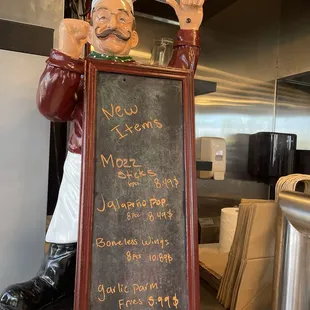 New
Items
Mozz
Sticks
8pc 8.49$
Jalapeño pop
8pc 8.49$
Boneless wings
8pc 10.89$
garlic parm
Fries 5.99$